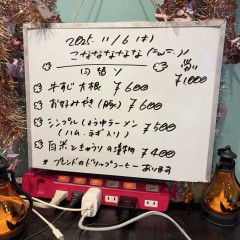 2025. 11/6 (木)
こなななななな (=ω=.)
日替り
¥1000
牛すじ大根 ¥600
お好みやき(豚) ¥600
シンプルしょうゆラーメン ¥500
(ハム、ネギ入り)
白米ときゅうりの漬物 ¥400
※ブレンドのドリップコーヒーあります